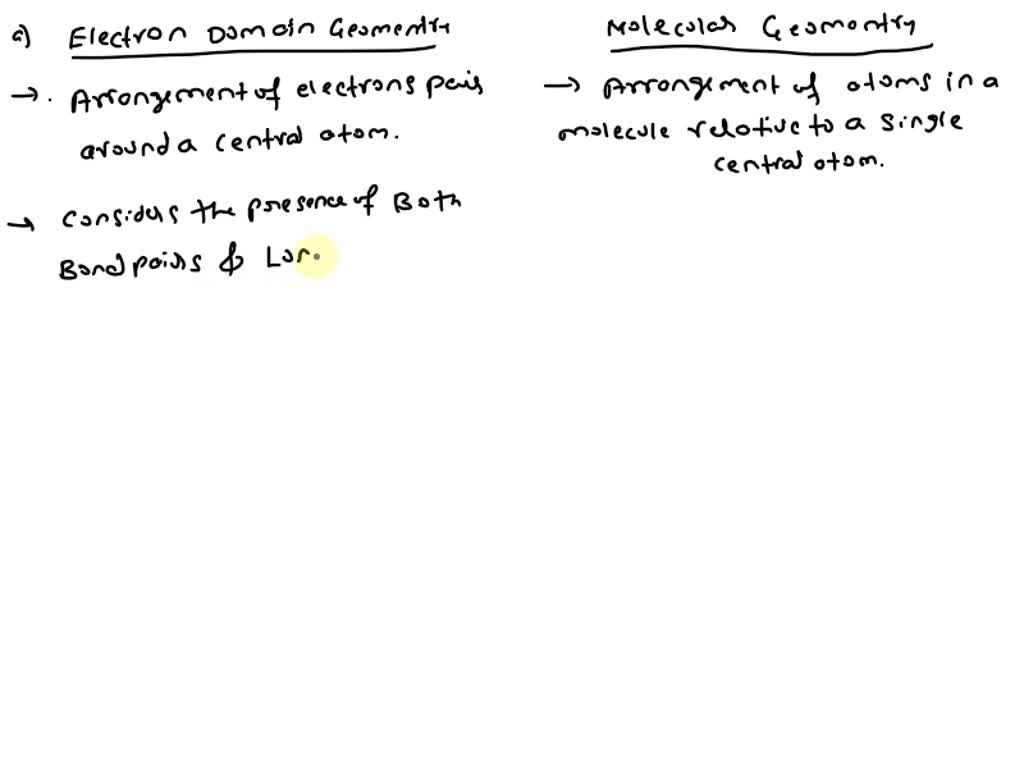 a) Electron Domain Geomentry
→. Arrangement of electrons pais
around a central atom.
→ Considers the presence of Both
Bond pairs & Lon
Molecular Geomentry
→ Arrangement of atoms in a
molecule relative to a single
central atom.